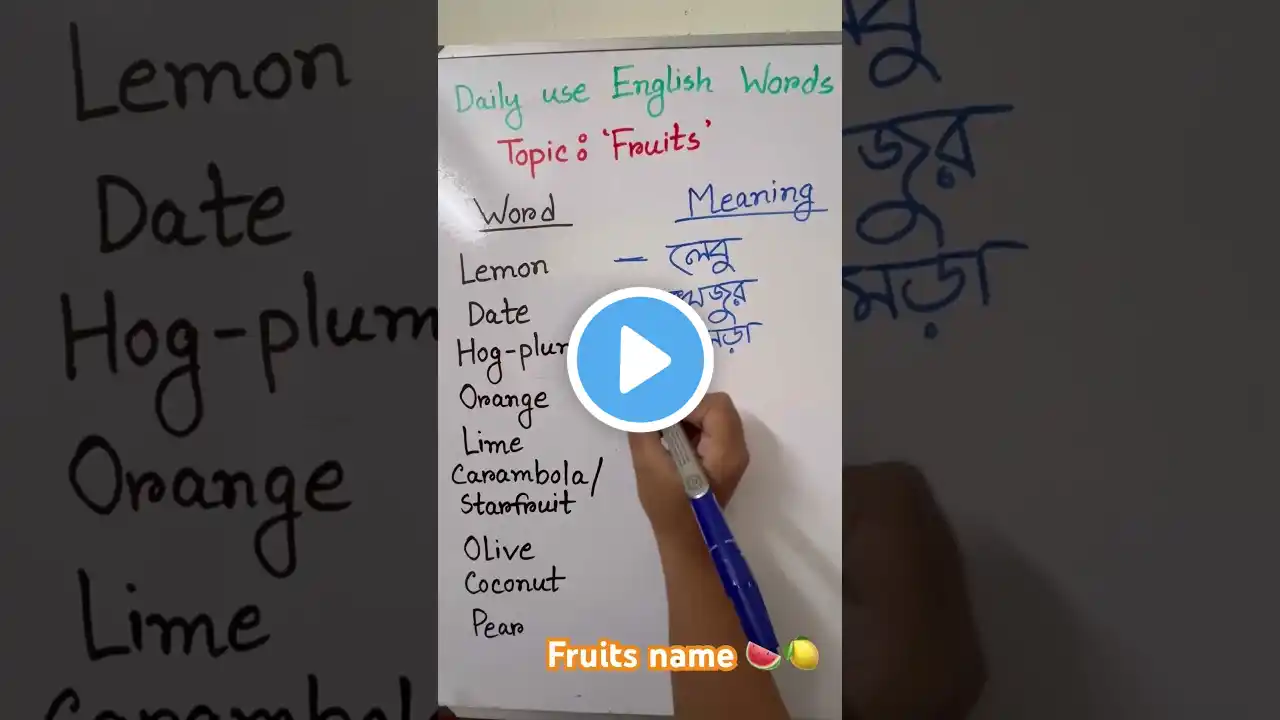 Daily use English Words
Topic: 'Fruits'
Word Meaning
Lemon — লেবু
Date খেজুর
Hog-plum
Orange
Lime
Carambola/
Starfruit
Olive
Coconut
Pear
Fruits name 🍉🍋